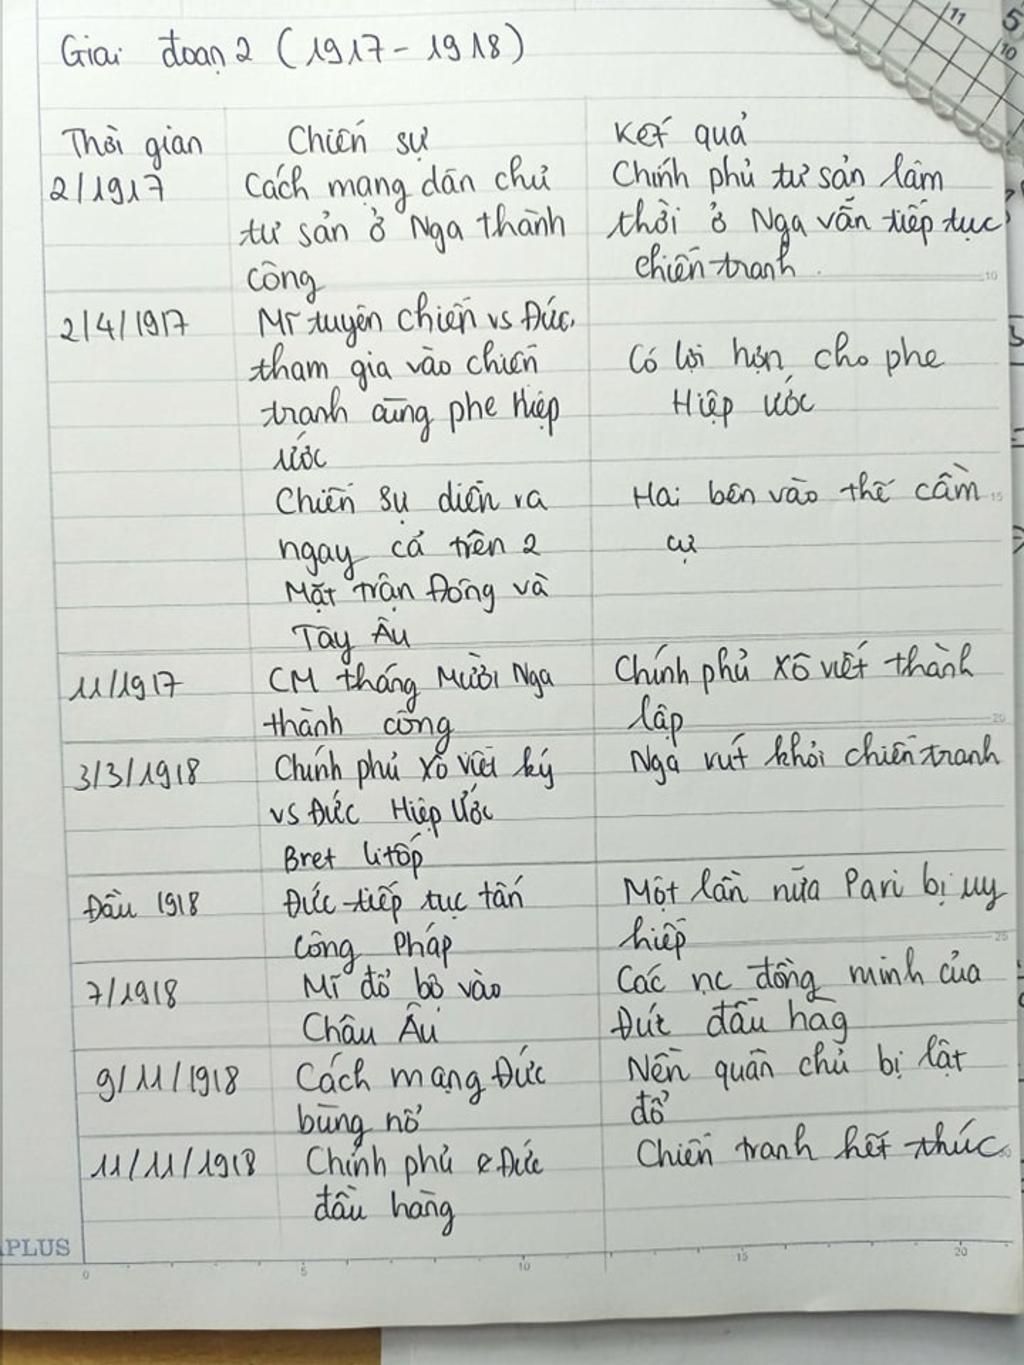 Giai đoạn 2 (1917 - 1918)
Thời gian Chiến sự Kết quả
2/1917 Cách mạng dân chủ Chính phủ tư sản lâm
tư sản ở Nga thành thời ở Nga vẫn tiếp tục
công chiến tranh.
2/4/1917 Mĩ tuyên chiến vs Đức,
tham gia vào chiến Có lợi hơn cho phe
tranh cùng phe Hiệp Hiệp ước
ước
Chiến sự diễn ra Hai bên vào thế cầm
ngay cả trên 2 cự
Mặt trận Đông và
Tây Âu
11/1917 CM tháng Mười Nga Chính phủ Xô viết thành
thành công lập
3/3/1918 Chính phủ Xô Viết ký Nga rút khỏi chiến tranh
vs Đức Hiệp Ước
Bret litốp
Đầu 1918 Đức tiếp tục tấn Một lần nữa Pari bị uy
công Pháp hiếp
7/1918 Mĩ đổ bộ vào Các nc đồng minh của
Châu Âu Đức đầu hàg
9/11/1918 Cách mạng Đức Nền quân chủ bị lật
bùng nổ đổ
11/11/1918 Chính phủ Đức Chiến tranh hết thúc
đầu hàng
PLUS
0 5 10 15 20
10
15
20
25
11
10
5